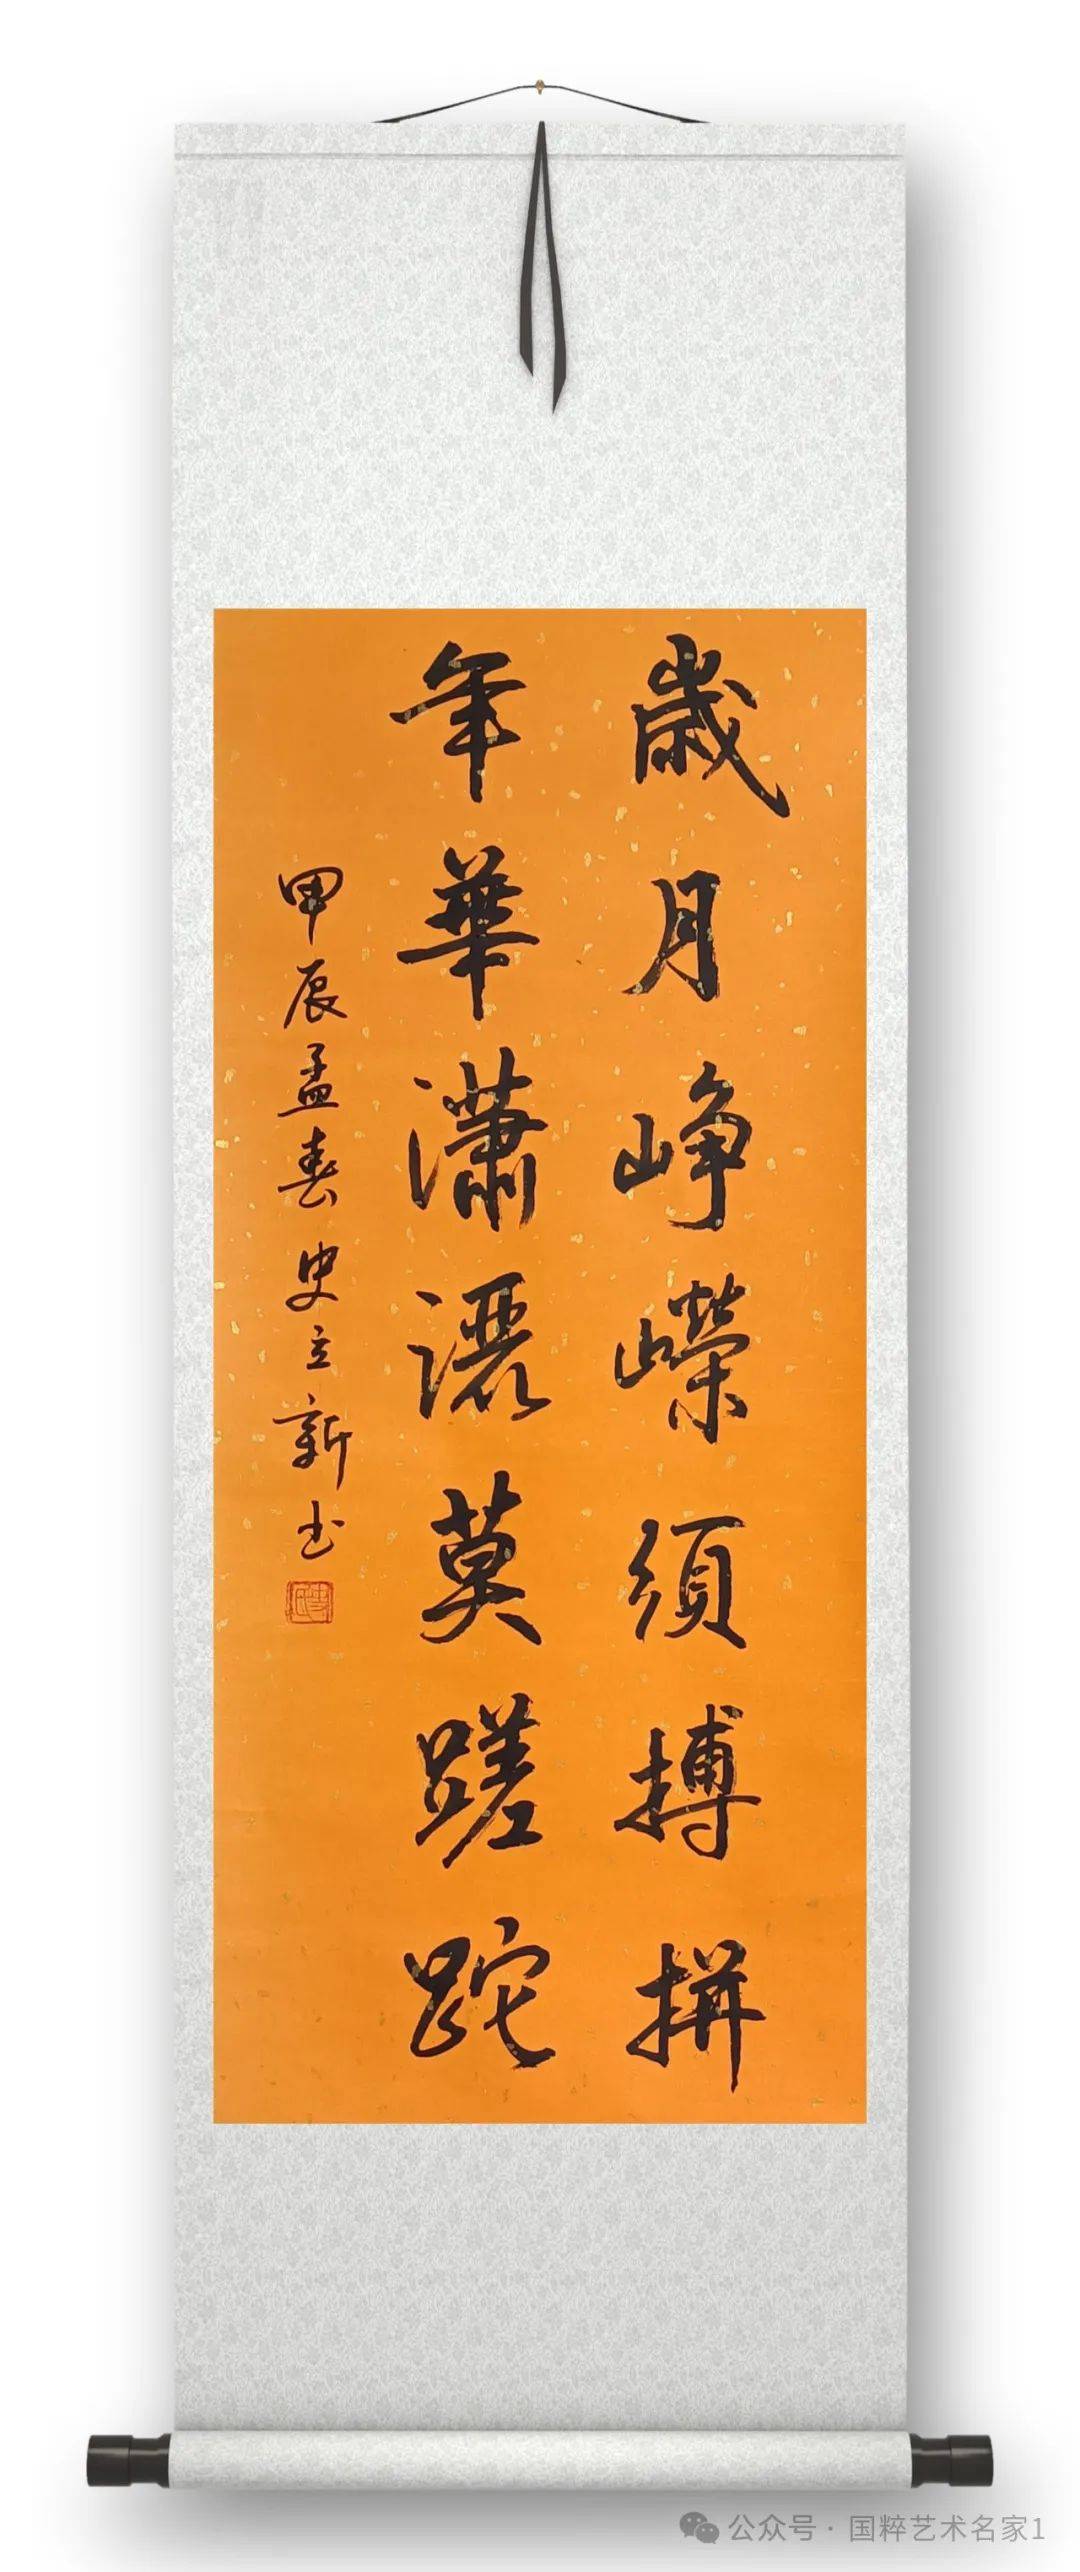 歲月峥嶸須搏拼
年華瀟灑莫蹉跎
甲辰孟春史立新书
公众号·国粹艺术名家1